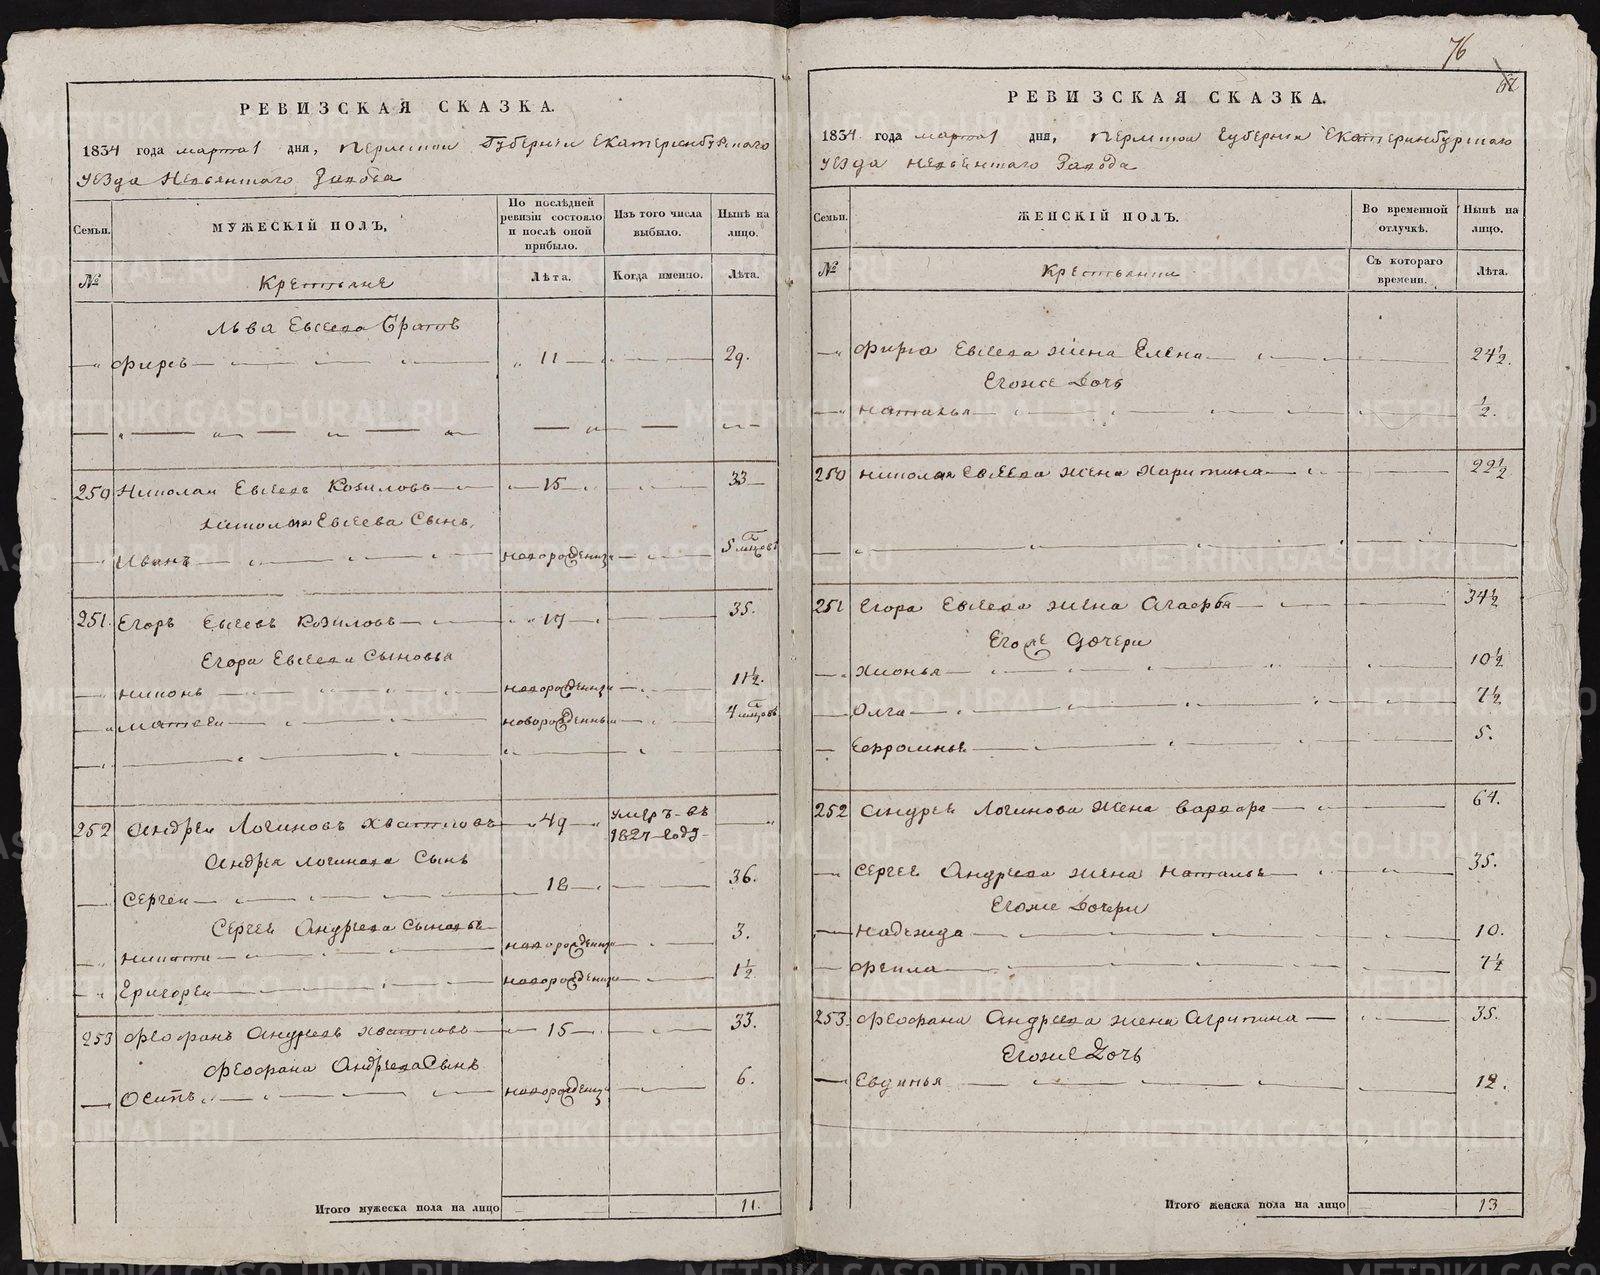 РЕВИЗСКАЯ СКАЗКА.
1834 года марта 1 дня, Пермской Губернии Екатеринбургскаго
уезда Невьянскаго Завода
Семьи. МУЖЕСКІЙ ПОЛЪ, По послѣдней ревизіи состояло и послѣ оной прибыло. Изъ того числа выбыло. Нынѣ на лицо.
№ Крестьяне Лѣта. Когда именно. Лѣта.
Льва Евсеева Братъ
Фирсъ 11 29.
250 Николай Евсеевъ Козиловъ 15 33
Николая Евсеева Сынъ
Иванъ новорожденный 5 мцовъ
251. Егоръ Евсеевъ Козиловъ 17 35.
Егора Евсеева Сыновья
Никонъ новорожденный 11½.
Матвей новорожденный 4 мцовъ
252 Андрей Логиновъ Хватковъ 49 умеръ въ 1827 году
Андрея Логинова Сынъ
Сергей 18 36.
Сергея Андреева Сыновья
Никита новорожденный 3.
Григорей новорожденный 1½
253 Феофанъ Андреевъ Хватковъ 15 33.
Феофана Андреева Сынъ
Осипъ новорожденный 6.
Итого мужеска пола на лицо 11.
76
РЕВИЗСКАЯ СКАЗКА.
1834 года марта 1 дня, Пермской Губернии Екатеринбургскаго
уезда Невьянскаго Завода
Семьи. ЖЕНСКІЙ ПОЛЪ. Во временной отлучкѣ. Нынѣ на лицо.
№ Крестьянки Съ котораго времени. Лѣта.
Фирса Евсеева жена Елена 24½.
Егоже Дочь
Наталья ½.
250 Николая Евсеева жена Харитина 22½
251 Егора Евсеева жена Агафья 34½
Егоже Дочери
Хионья 10½
Олга 7½
Ефросинья 5.
252 Андрея Логинова жена Варвара 64.
Сергея Андреева жена Наталья 35.
Егоже Дочери
Надежда 10.
Фекла 7½
253. Феофана Андреева жена Агрипина 35.
Егоже Дочь
Евдинья 12.
Итого женска пола на лицо 13
METRIKI.GASO-URAL.RU